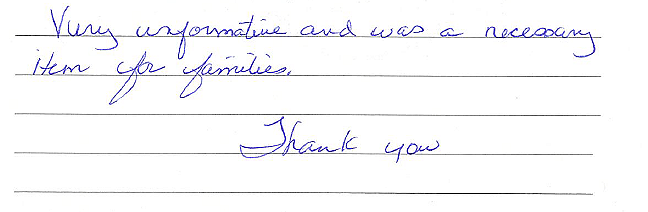 Very informative and was a necessary
item for families.
Thank you